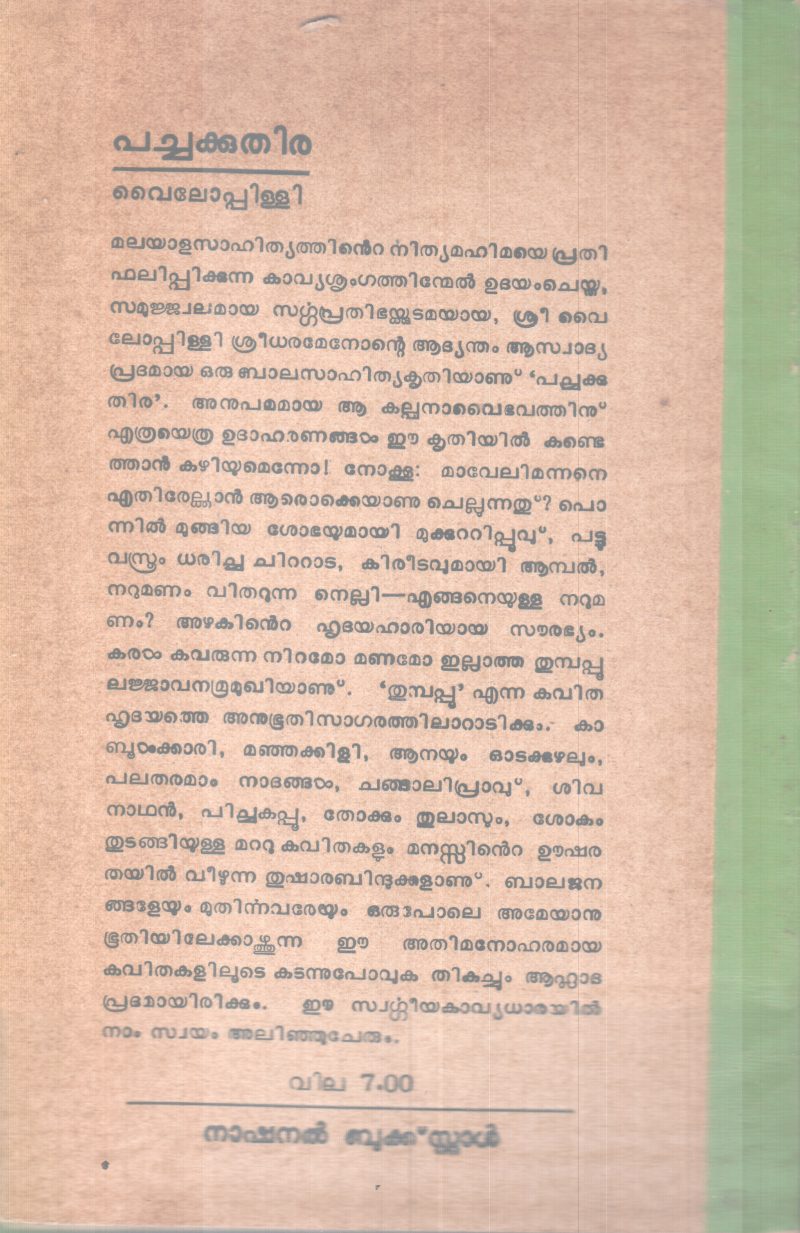 പച്ചക്കുതിര
വൈലോപ്പിള്ളി
മലയാളസാഹിത്യത്തിൻെറ നിത്യമഹിമയെ പ്രതി
ഫലിപ്പിക്കുന്ന കാവ്യശൃംഗത്തിന്മേൽ ഉദയംചെയ്ത,
സമുജ്ജ്വലമായ സർഗ്ഗപ്രതിഭയ്ക്കുടമയായ, ശ്രീ വൈ
ലോപ്പിള്ളി ശ്രീധരമേനോന്റെ ആദ്യന്തം ആസ്വാദ്യ
പ്രദമായ ഒരു ബാലസാഹിത്യകൃതിയാണു് ‘പച്ചക്കു
തിര’. അനുപമമായ ആ കല്പനാവൈഭവത്തിനു്
എത്രയെത്ര ഉദാഹരണങ്ങൾ ഈ കൃതിയിൽ കണ്ടെ
ത്താൻ കഴിയുമെന്നോ! നോക്കൂ: മാവേലിമന്നനെ
എതിരേല്ക്കാൻ ആരൊക്കെയാണു ചെല്ലുന്നതു്? പൊ
ന്നിൽ മുങ്ങിയ ശോഭയുമായി മുക്കുററിപ്പൂവു്, പട്ടു
വസ്ത്രം ധരിച്ച ചിററാട, കിരീടവുമായി ആമ്പൽ,
നറുമണം വിതറുന്ന നെല്ലി—എങ്ങനെയുള്ള നറുമ
ണം? അഴകിൻെറ ഹൃദയഹാരിയായ സൗരഭ്യം.
കരൾ കവരുന്ന നിറമോ മണമോ ഇല്ലാത്ത തുമ്പപ്പൂ
ലജ്ജാവനമ്രമുഖിയാണു്. ‘തുമ്പപ്പൂ’ എന്ന കവിത
ഹൃദയത്തെ അനുഭൂതിസാഗരത്തിലാറാടിക്കും. കാ
ബൂൾക്കാരി, മഞ്ഞക്കിളി, ആനയും ഓടക്കുഴലും,
പലതരമാം നാദങ്ങൾ, ചങ്ങാലിപ്രാവു്, ശിവ
നാഥൻ, പിച്ചകപ്പൂ, തോക്കും തുലാസും, ശോകം
തുടങ്ങിയുള്ള മററു കവിതകളും മനസ്സിൻെറ ഊഷര
തയിൽ വീഴുന്ന തുഷാരബിന്ദുക്കളാണു്. ബാലജന
ങ്ങളേയും മുതിർന്നവരേയും ഒരുപോലെ അമേയാനു
ഭൂതിയിലേക്കാഴ്ത്തുന്ന ഈ അതിമനോഹരമായ
കവിതകളിലൂടെ കടന്നുപോവുക തികച്ചും ആഹ്ലാദ
പ്രദമായിരിക്കും. ഈ സ്വർഗ്ഗീയകാവ്യധാരയിൽ
നാം സ്വയം അലിഞ്ഞുചേരും.
വില 7.00
നാഷനൽ ബുക്ക്സ്റ്റാൾ